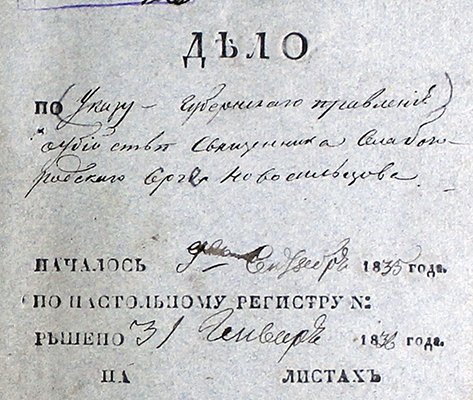 ДѢЛО
ПО Указу Губернскаго правленія
о убійствѣ Священника Слабого-
родскаго Сергея Новосильцова
НАЧАЛОСЬ 1835 года.
ПО НАСТОЛЬНОМУ РЕГИСТРУ №
РѢШЕНО 31 Генваря 1836 года.
НА ЛИСТАХЪ